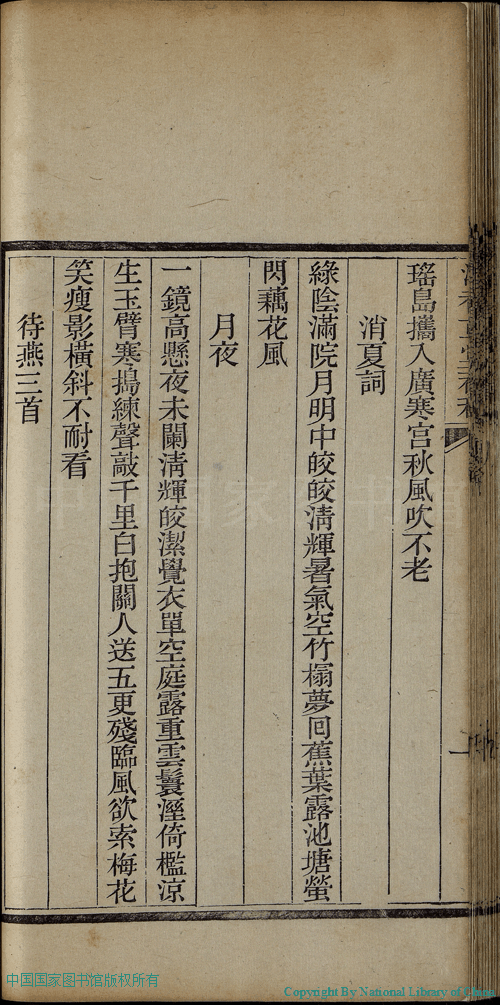 瑤島攜入廣寒宮秋風吹不老
消夏詞
綠陰滿院月明中皎皎清輝暑氣空竹榻夢回蕉葉露池塘螢
閃藕花風
月夜
一鏡高懸夜未闌清輝皎潔覺衣單空庭露重雲鬟溼倚檻涼
生玉臂寒搗練聲敲千里白抱關人送五更殘臨風欲索梅花
笑瘦影橫斜不耐看
待燕三首
中国国家图书馆版权所有
Copyright By National Library of China